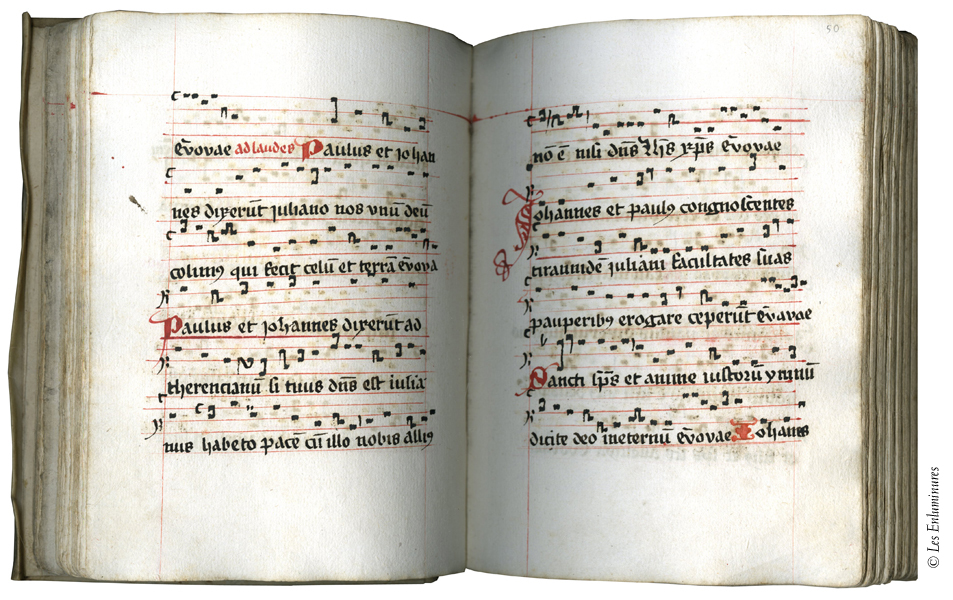 ēvovae ad laudes Paulus et iohan
nes dixerūt iuliano nos vnū deū
colimꝰ qui fecit celū et terrā ēvova
Paulus et iohannes dixerūt ad
therencianū si tuus dn̄s est iulia
nus habeto pacē cū illo nobis alliꝰ
50
nō ē nisi dn̄s ih̄s xp̄s ēvovae
Iohannes et paulꝰ congnoscentes
tirannidē iuliani facultates suas
pauperibꝰ erogare ceperūt ēvavae
Sancti sp̄s et anime iustorū ymnū
dicite deo ineternū ēvovae Iohānes
© Les Enluminures